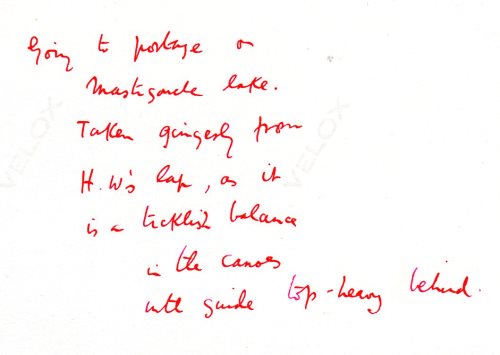 Going to portage on
Mastigouche lake.
Taken gingerly from
H.W's lap, as it
is a ticklish balance
in the canoes
with guide top-heavy behind.
VELOX
VELOX